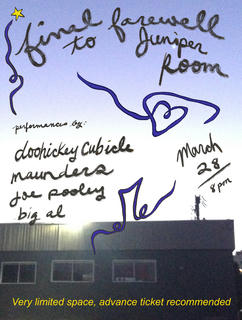 final farewell
to Juniper
Room
performances by:
doohickey Cubicle
maunders
joe pooley
big al
March
28
8pm
Very limited space, advance ticket recommended